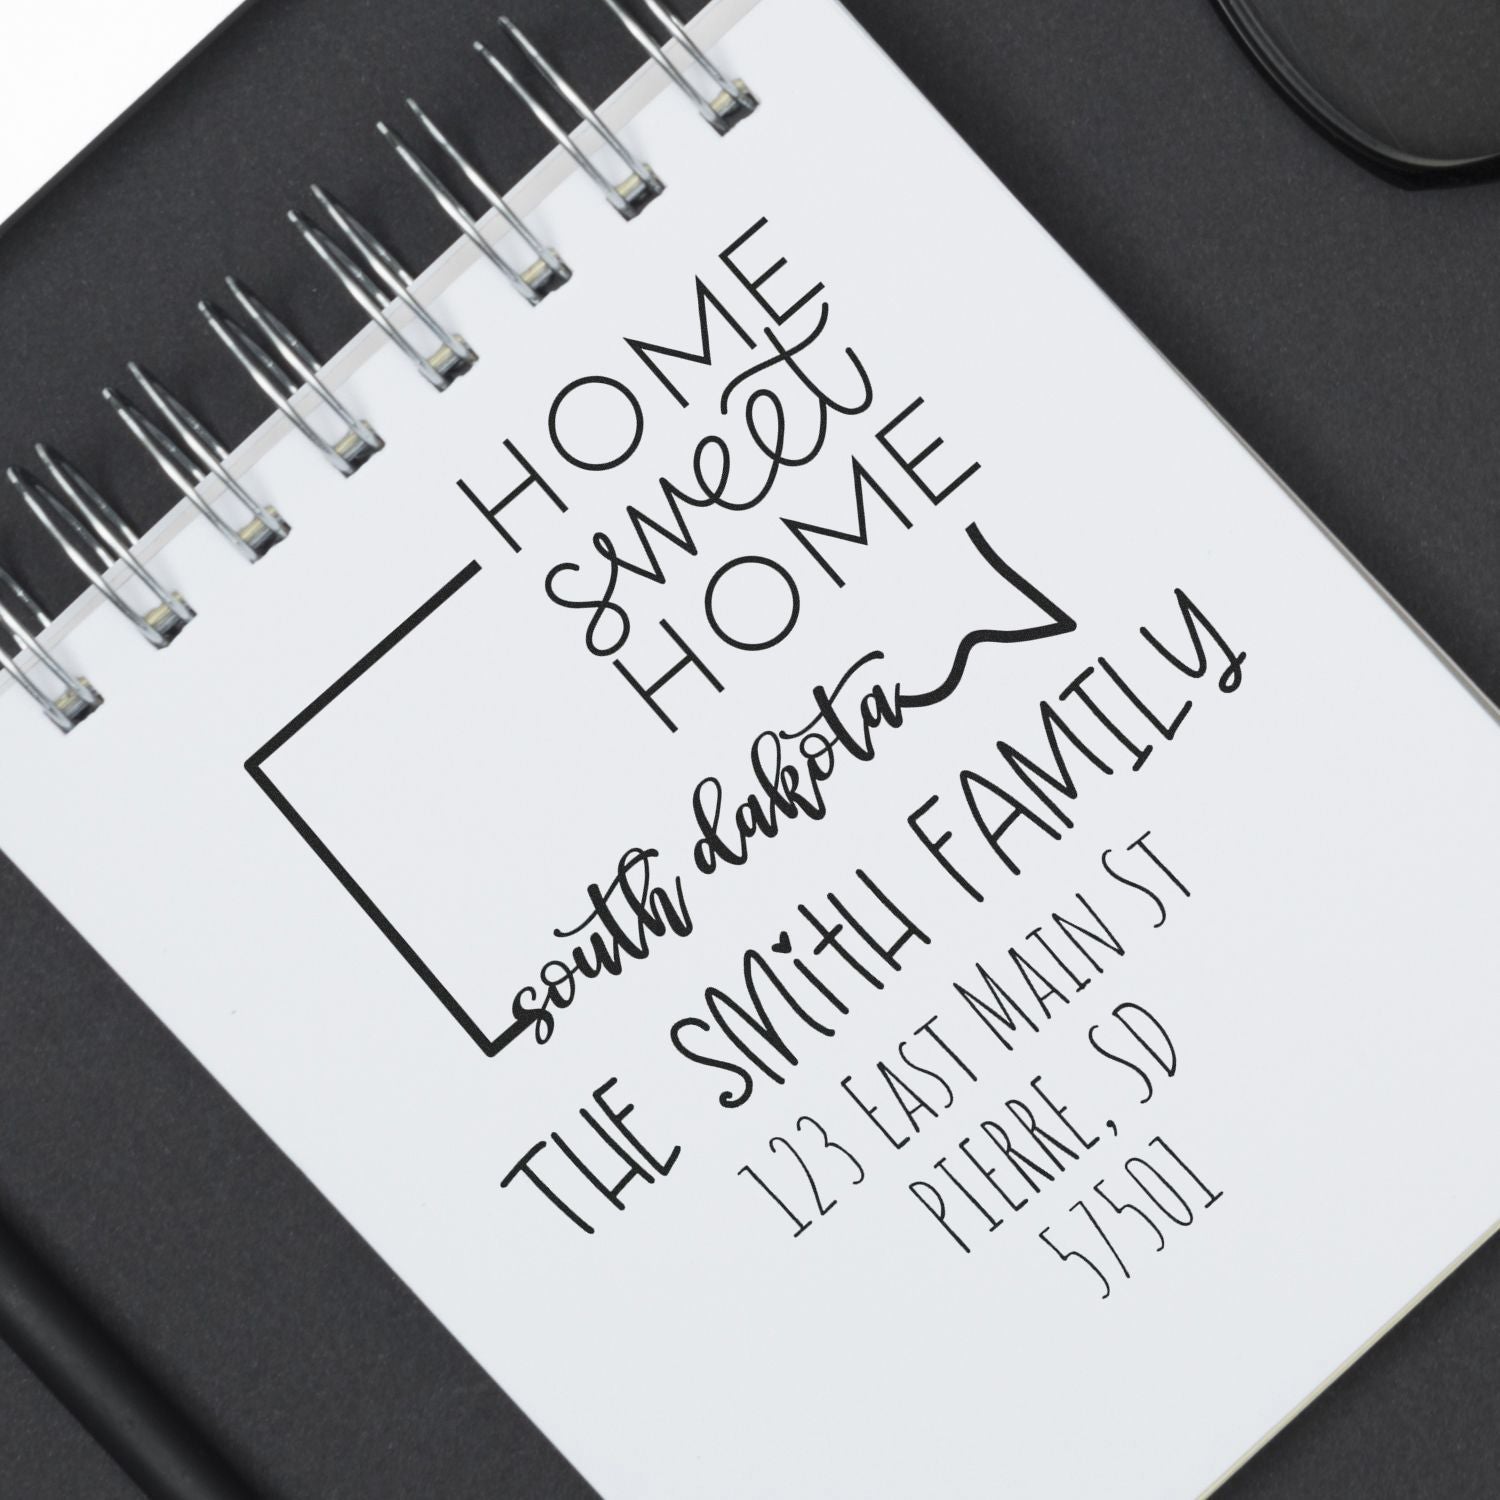 HOME
sweet
HOME
south dakota
THE SMiTH FAMILY
123 EAST MAIN ST
PIERRE, SD
57501